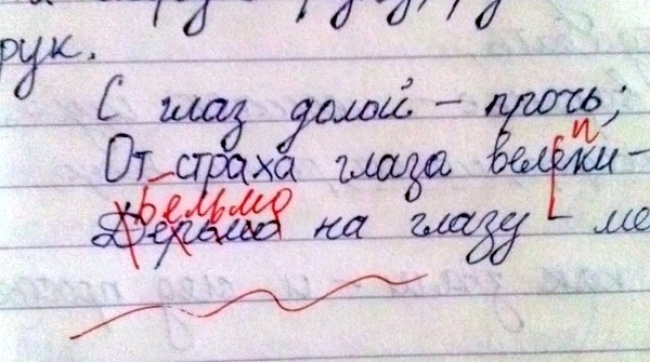 рук.
С глаз долой – прочь;
От страха глаза велеки –
и
Бельмо
Дерьмо на глазу – ме